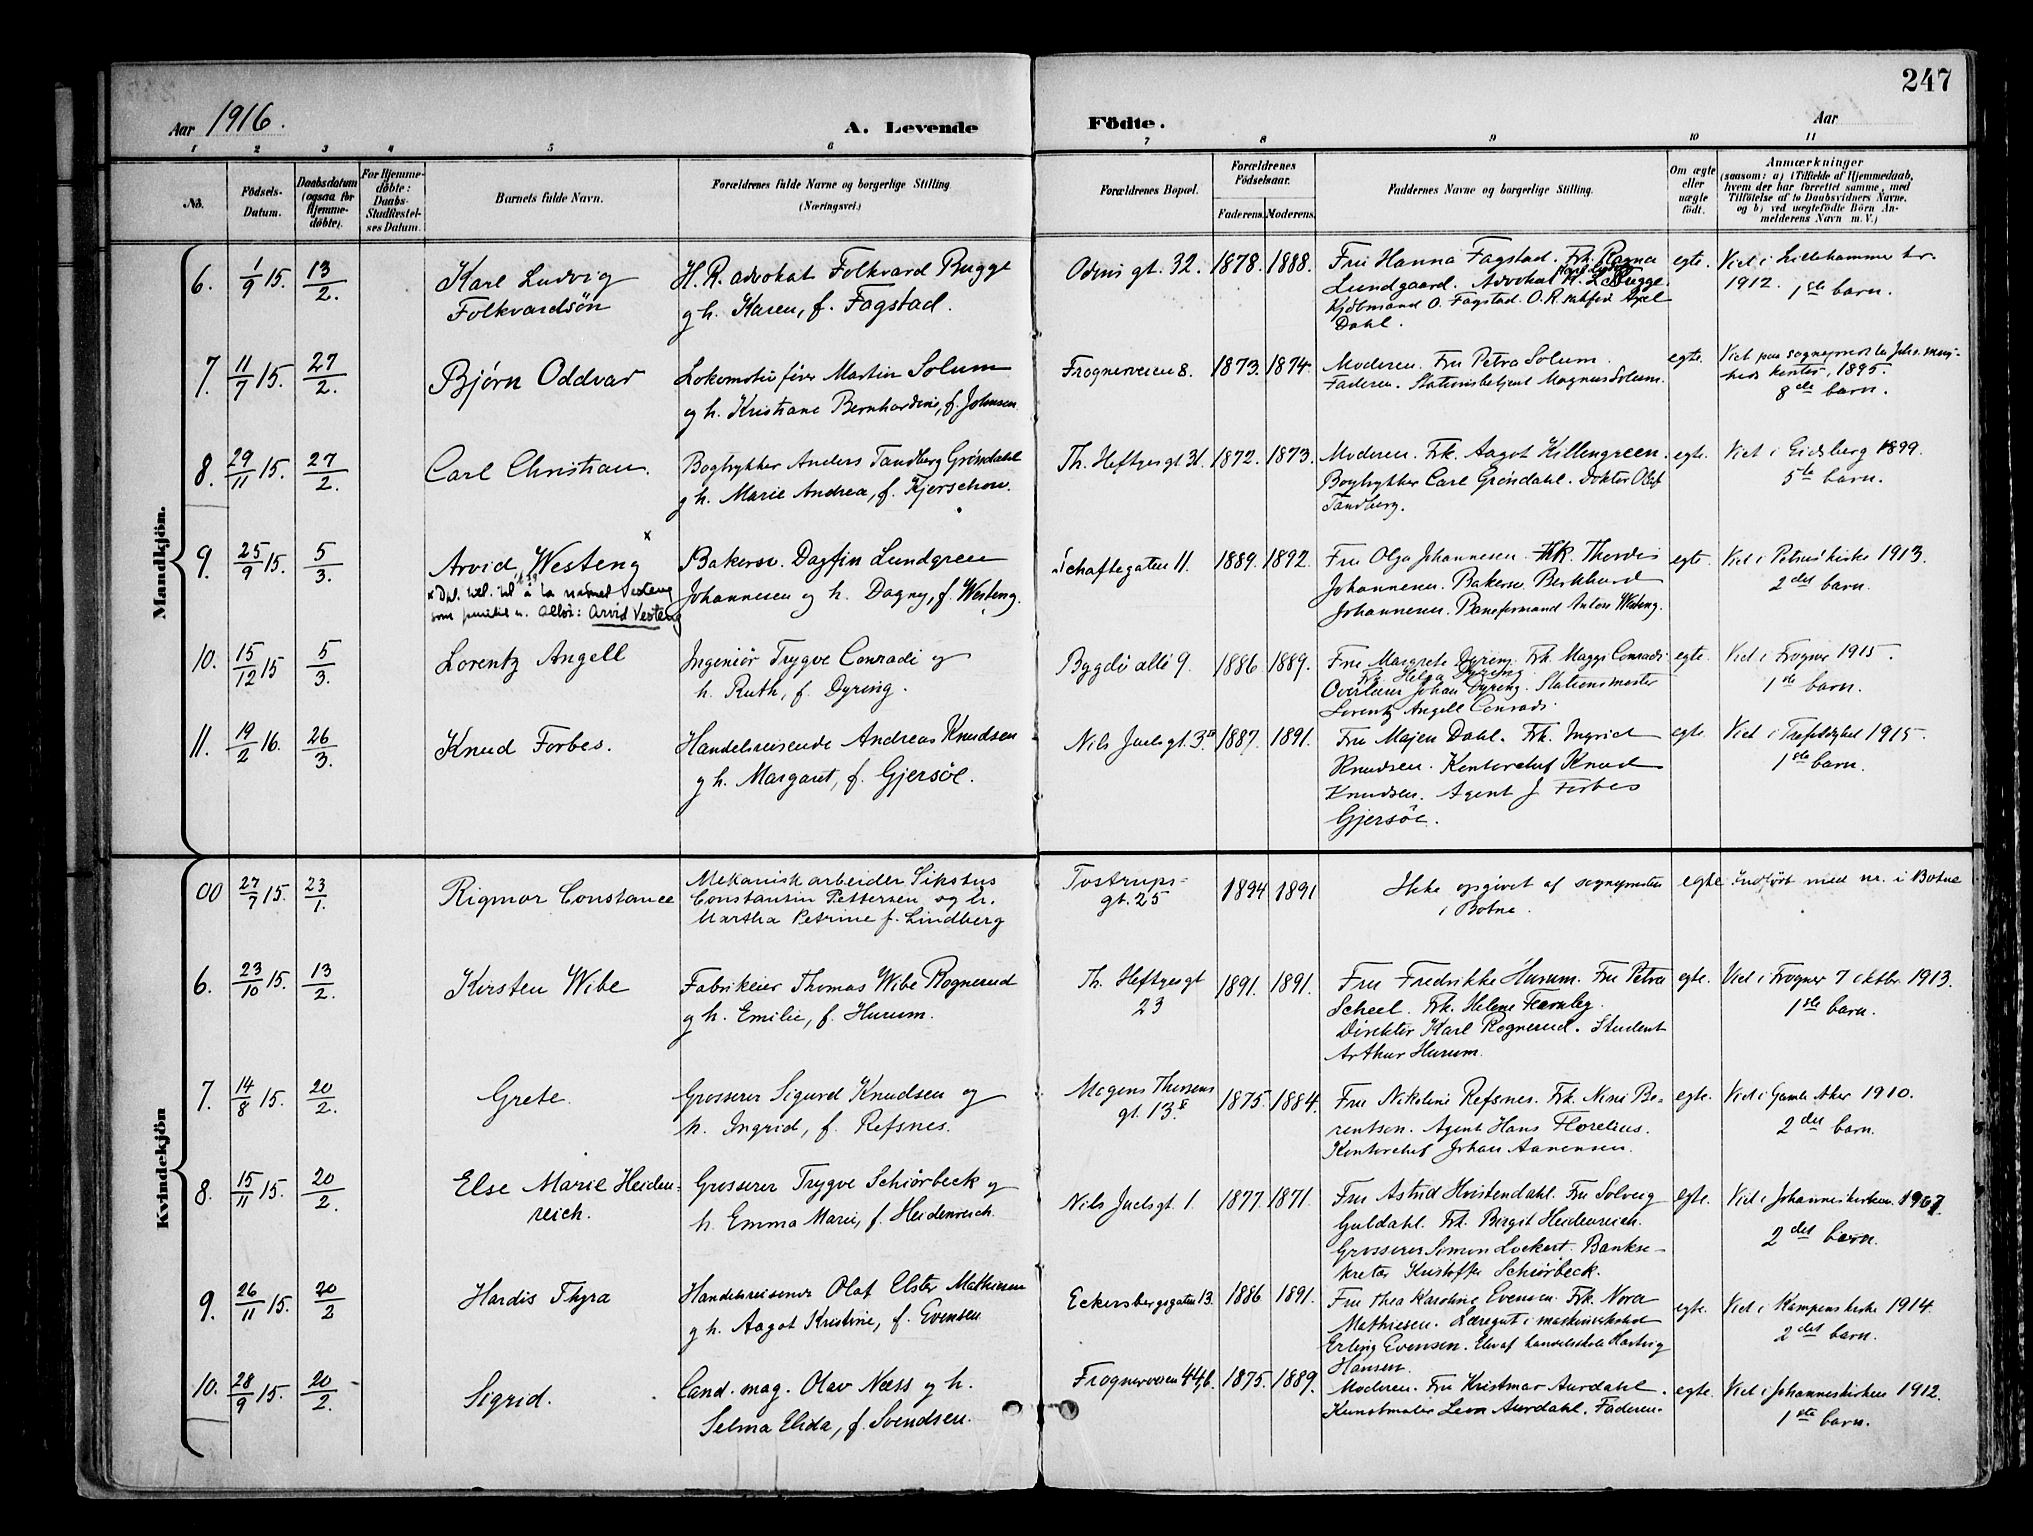 247
Aar 1916.
A. Levende Födte.
Aar
1 2 3 4 5 6 7 8 9 10 11
No.
Födsels-Datum.
Daabsdatum (ogsaa for Hjemme-döbte).
For Hjemme-döbte: Daabs-Stadfæstel-ses Datum.
Barnets fulde Navn.
Forældrenes fulde Navne og borgerlige Stilling. (Næringsvei.)
Forældrenes Bopæl.
Forældrenes Födselsaar.
Faderens. Moderens.
Faddernes Navne og borgerlige Stilling.
Om ægte eller uægte født.
Anmærkninger
(saasom: a) i Tilfælde af Hjemmedaab,
hvem der har forrettet samme, med
Tilföielse af to Daabsvidners Navne,
og b) ved uægtefödte Börn An-
melderens Navn m. V.)
Mandkjön.
6. 1/9 15. 13/2. Karl Ludvig
Folkvardsön
H. R. advokat Folkvard Bugge
g h. Karen, f. Fagstad.
Odins gt. 32. 1878. 1888.
Fru Hanna Fagstad. Frk. Ragna
Lundgaard. Advokat K. L. Bugge.
Kjöbmand O. Fagstad. O.R. sakfører Axel
Dahl.
egte. Viet i Lillehammer
1912. 1ste barn.
7. 11/7 15. 27/2. Bjørn Oddvar
Lokomotivfører Martin Solum
og h. Kristiane Bernhardine, f. Johnsen
Frognerveien 8. 1873. 1874.
Moderen. Fru Petra Solum.
Faderen. Stationsbetjent Magnus Solum.
egte. Viet paa sogneprest
kontor, 1895.
8de barn.
8. 29/11 15. 27/2. Carl Christian.
Bogtrykker Anders Tandberg Gröndahl
g h. Marie Andrea, f. Kjerschow.
Th. Heftyesgt 31. 1872. 1873.
Moderen. Frk. Aagot Killengreen.
Bogtrykker Carl Gröndahl. Doktor Olaf
Tandberg.
egte. Viet i Eidsberg 1899.
5te barn.
9. 25/9 15. 5/3. Arvid Westeng x
Arvid Vesteng
Bakersv. Dagfin Lundgreen
Johannesen og h. Dagny, f. Westeng.
Schaftegaten 11. 1889. 1892.
Fru Olga Johannesen. Frk. Thordis
Johannesen. Bakersv. Bernhard
Johannesen. Baneformand Anton Westeng.
egte. Viet i Petruskirke 1913.
2det barn.
10. 15/12 15 5/3. Lorentz Angell
Ingeniør Trygve Conradi og
h. Ruth, f. Dyring.
Bygdö allé 9. 1886. 1889.
Fru Margrete Dyring. Frk. Maggi Conradi
Frk Helga Dyring
Overlærer Johan Dyring. Stationsmester
Lorentz Angell Conradi.
egte. Viet i Frogner 1915.
1ste barn.
11. 19/2 16. 26/3. Knud Forbes.
Handelsreisende Andreas Knudsen
g h. Margaret, f. Gjersøe.
Nils Juelsgt. 3 1887. 1891.
Fru Majen Dahl. Frk. Ingrid
Knudsen. Kontorchef Knud
Knudsen. Agent J Forbes
Gjersöe.
egte. Viet i 1915.
1ste barn.
Kvindekjön
00 27/7 15. 23/1. Rigmor Constance
Mekanisk arbeider Sikstus
Constantin Pettersen og h.
Martha Petrine f. Lindberg
Tostrups-
gt. 25 1894 1891
Ikke opgivet af sognepresten
i Botne.
egte Indført med nr. i Botne
6. 23/10 15. 13/2. Kirsten Wibe
Fabrikeier Thomas Wibe Rognerud
g h. Emilie, f. Hurum.
Th. Heftyesgt
23 1891. 1891.
Fru Fredrikke Hurum. Fru Petra
Scheel. Frk. Helene Fearnley.
Direktör Karl Rognerud. Student
Arthur Hurum.
egte. Viet i Frogner 7 oktbr. 1913.
1ste barn.
7. 14/8 15. 20/2. Grete.
Grosserer Sigurd Knudsen og
h. Ingrid, f. Refsnes.
Mogens Thorsens
gt. 13 II 1875. 1884.
Fru Nikoline Refsnes. Frk. Nini Be-
rentsen. Agent Hans Florelius.
Kontorchef Johan Aanensen.
egte. Viet i Gamle Aker 1910.
2det barn.
8. 15/11 15. 20/2. Else Marie Heiden-
reich.
Grosserer Trygve Schiørbeck og
h. Emma Marie, f. Heidenreich.
Nils Juelsgt. 1. 1877. 1871.
Fru Astrid Hvistendahl. Fru Solveig
Guldahl. Frk. Birgit Heidenreich.
Grosserer Simon Lockert. Bankse-
kretær Kristoffer Schiørbeck.
egte. Viet i Johanneskirken 1907.
2det barn.
9. 26/11 15. 20/2 Hardis Thyra
Handelsreisende Olaf Elster Mathiesen
g h. Aagot Kristine, f. Evensen
Eckersbergsgaten 13. 1886 1891.
Fru Thea Karoline Evensen. Frk. Nora
Mathiesen. Læregut i maskinverksted
Erling Evensen. Elev af handelsskole Hartvig
Hansen.
egte. Viet i Kampens kirke 1914.
2det barn.
10. 28/9 15. 20/2. Sigrid.
Cand. mag. Olav Næss g h.
Selma Elida, f. Svendsen.
Frognerveien 44b. 1875. 1889.
Moderen. Fru Kristmar Aurdahl.
Kunstmaler Leon Aurdahl. Faderen.
egte. Viet i Johanneskirken 1912.
1ste barn.